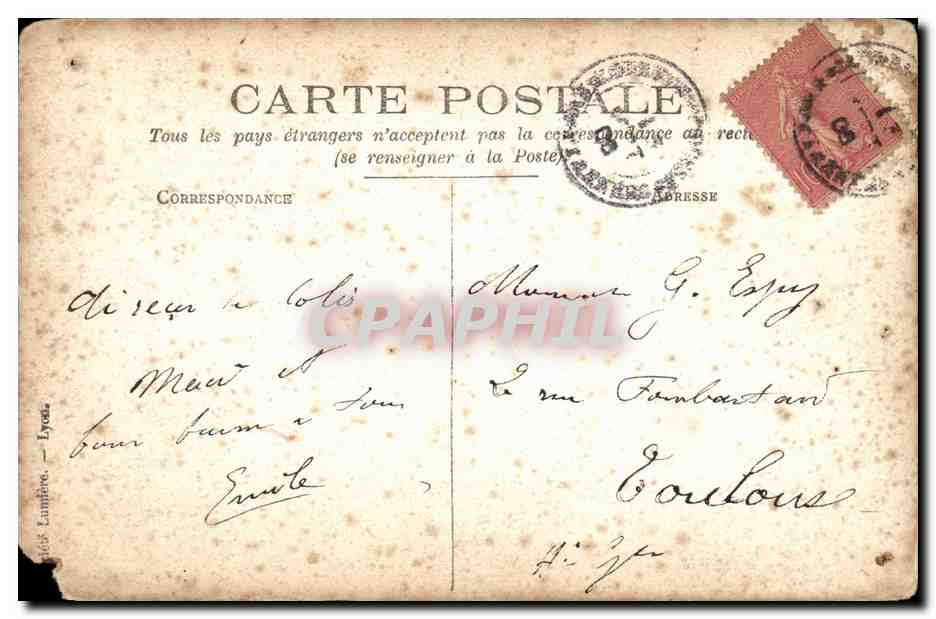 CARTE POSTALE
Tous les pays étrangers n'acceptent pas la correspondance au recto
(se renseigner à la Poste)
CORRESPONDANCE
ADRESSE
ai reçu le colis
Merci et
à tous
Emile
G. Espy
2 rue
Toulouse
Hte Gne
Lumière. — Lyon.
CPAPHIL